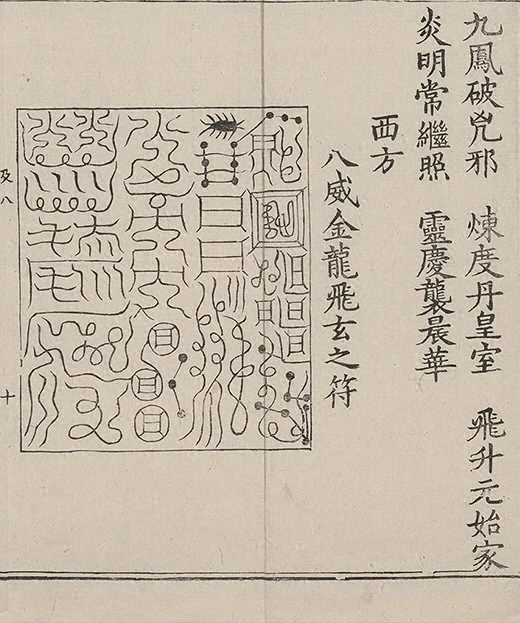 九鳳破兇邪　煉度丹皇室　飛升元始家
炎明常繼照　靈慶襲晨華
西方
八威金龍飛玄之符
及八
十